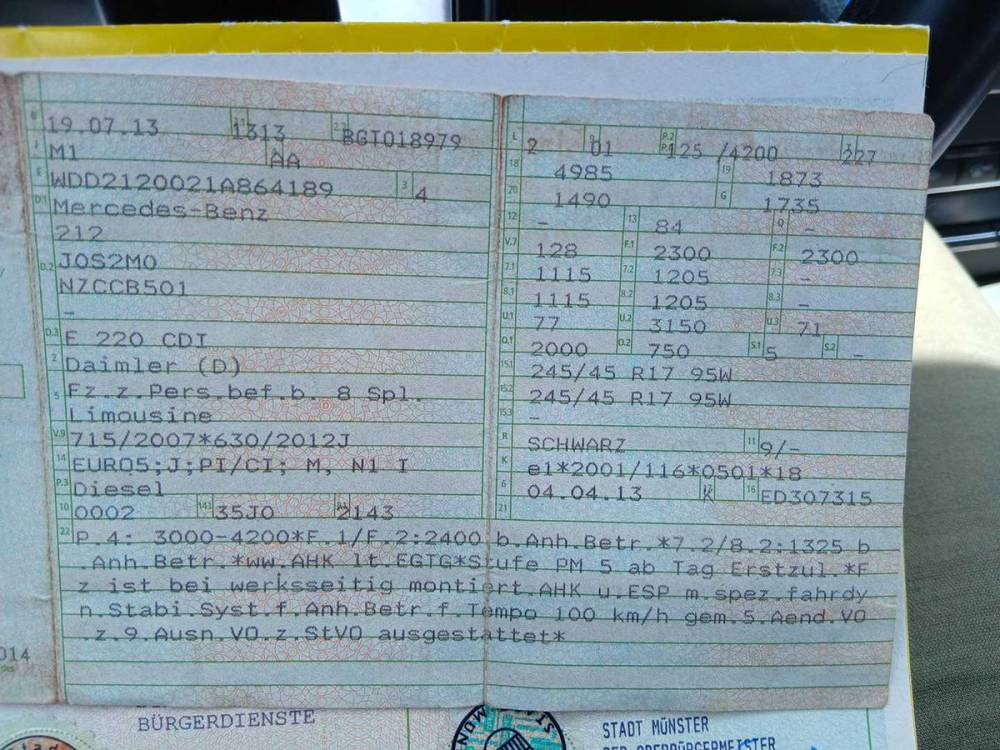 B 19.07.13 2.1 1313 2.2 BGT018979
J M1 4 AA
E WDD2120021A864189 3 4
D.1 Mercedes-Benz
212
D.2 JOS2M0
NZCCB501
-
D.3 E 220 CDI
2 Daimler (D)
5 Fz.z.Pers.bef.b. 8 Spl.
Limousine
V.9 715/2007*630/2012J
14 EURO5;J;PI/CI; M, N1 I
P.3 Diesel
10 0002 14.1 35J0 P.1 2143
L 2 9 01 P.2 P.4 125 /4200 T 227
18 4985 19 1873
20 1490 G 1735
12 - 13 84 Q -
V.7 128 F.1 2300 F.2 2300
7.1 1115 7.2 1205 7.3 -
8.1 1115 8.2 1205 8.3 -
U.1 77 U.2 3150 U.3 71
O.1 2000 O.2 750 S.1 5 S.2 -
15.1 245/45 R17 95W
15.2 245/45 R17 95W
15.3 -
R SCHWARZ 11 9/-
K e1*2001/116*0501*18
6 04.04.13 17 K 16 ED307315
21
22 P.4: 3000-4200*F.1/F.2:2400 b.Anh.Betr.*7.2/8.2:1325 b
.Anh.Betr.*ww.AHK lt.EGTG*Stufe PM 5 ab Tag Erstzul.*F
z ist bei werksseitig montiert.AHK u.ESP m.spez.fahrdy
n.Stabi.Syst.f.Anh.Betr.f.Tempo 100 km/h gem.5.Aend.VO
z.9.Ausn.VO.z.StVO ausgestattet*
014
BÜRGERDIENSTE
STADT MÜNSTER
DER OBERBÜRGERMEISTER